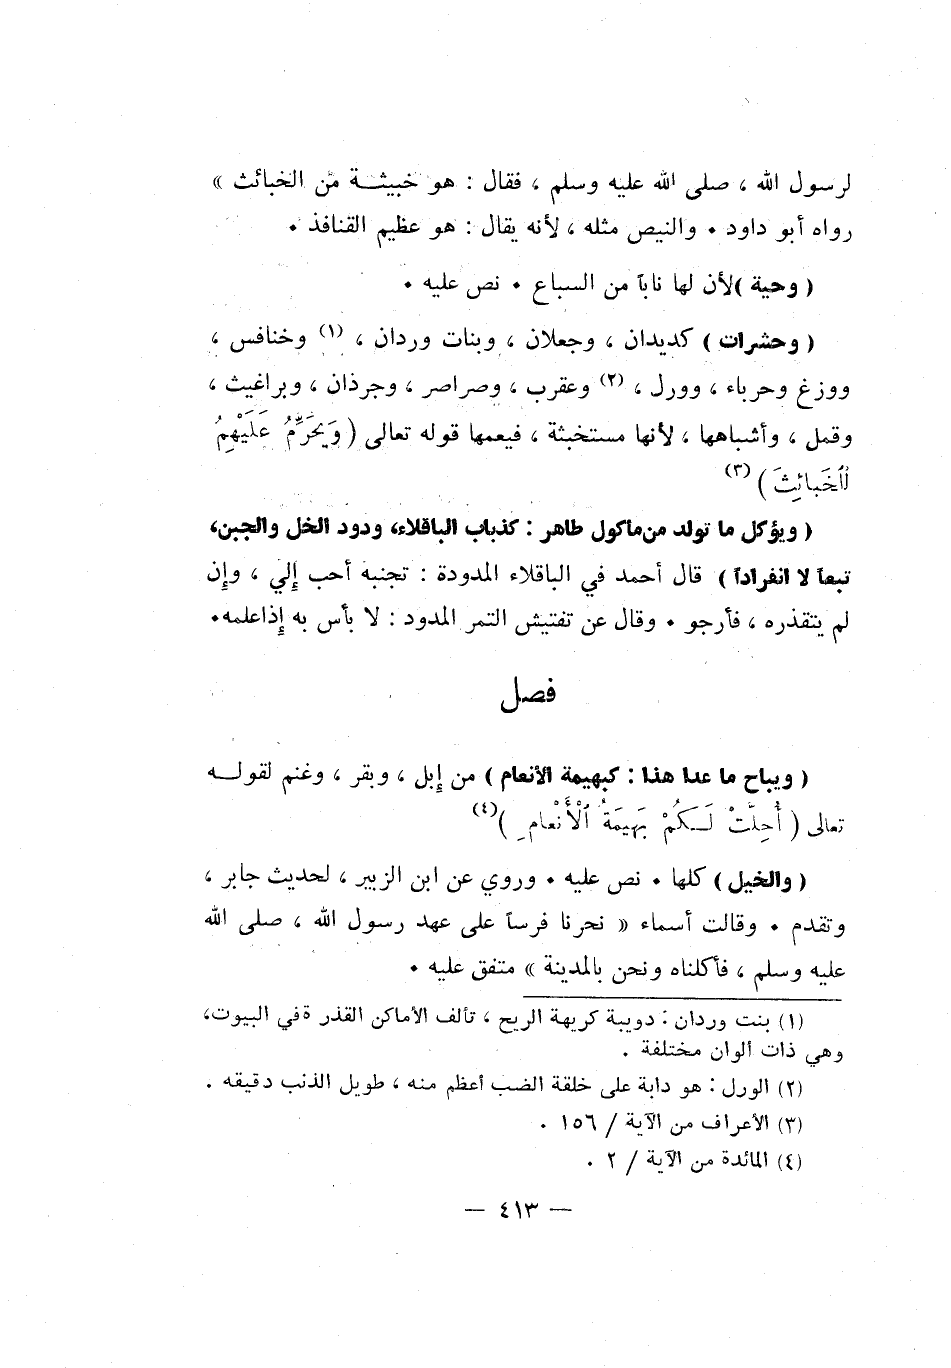 لرسول الله ، صلى الله عليه وسلم ، فقال : هو خبيثة من الخبائث »
رواه أبو داود ٠ والنيص مثله ، لأنه يقال : هو عظيم القنافذ ٠
( وحية )لأن لها ناباً من السباع ٠ نص عليه ٠
( وحشرات ) كديدان ، وجعلان ، وبنات وردان ، (١) وخنافس ،
ووزغ وحرباء ، وورل ، (٢) وعقرب ، وصراصر ، وجرذان ، وبراغيث ،
وقمل ، وأشباهها ، لأنها مستخبثة ، فيعمها قوله تعالى ( وَيُحَرِّمُ عَلَيْهِمُ
ٱلْخَبَائِثَ ) (٣)
( ويؤكل ما تولد من ماكول طاهر : كذباب الباقلاء، ودود الخل والجبن،
تبعاً لا انفراداً ) قال أحمد في الباقلاء المدودة : تجنبه أحب إلي ، وإن
لم يتقذره ، فأرجو ٠ وقال عن تفتيش التمر المدود : لا بأس به إذاعلمه٠
فصل
( ويباح ما عدا هذا : كبهيمة الأنعام ) من إبل ، وبقر ، وغنم لقولـه
تعالى ( أُحِلَّتْ لَـكُمْ بَهِيمَةُ ٱلْأَنْعامِ )(٤)
( والخيل ) كلها ٠ نص عليه ٠ وروي عن ابن الزبير ، لحديث جابر ،
وتقدم ٠ وقالت أسماء « نحرنا فرساً على عهد رسول الله ، صلى الله
عليه وسلم ، فأكلناه ونحن بالمدينة » متفق عليه ٠
(١) بنت وردان : دويبة كريهة الريح ، تألف الأماكن القذر ة في البيوت،
وهي ذات ألوان مختلفة .
(٢) الورل : هو دابة على خلقة الضب أعظم منه ، طويل الذنب دقيقه .
(٣) الأعراف من الآية / ١٥٦ .
(٤) المائدة من الآية / ٢ .
— ٤١٣ —